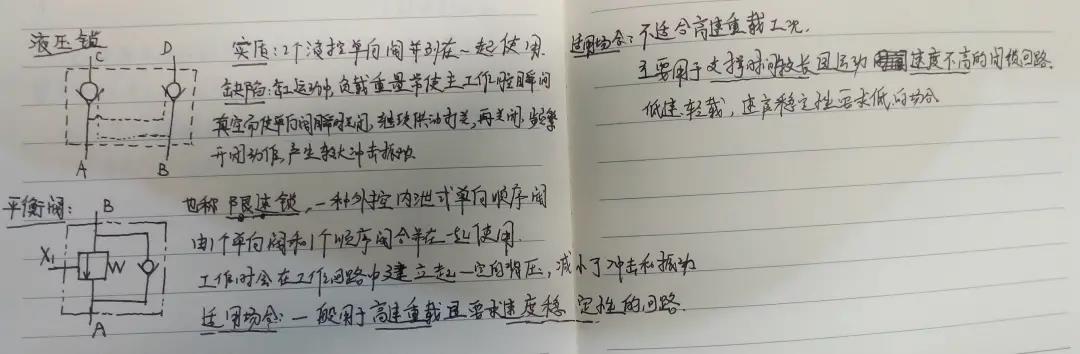 液压锁
C D
A B
实质：2个液控单向阀并列在一起使用.
缺陷：缸运动中,负载重量常使主工作腔瞬间
真空而使单向阀瞬时关闭,继续供油打开,再关闭.频繁
开闭动作,产生较大冲击振动.
适用场合：不适合高速重载工况.
主要用于支撑时间较长且运动速度不高的闭锁回路.
低速轻载，速度稳定性要求低的场合
平衡阀：
B
X₁ W
A
也称限速锁，一种外控内泄式单向顺序阀
由1个单向阀和1个顺序阀合并在一起使用.
工作时会在工作回路中建立起一定的背压，减小了冲击和振动
适用场合：一般用于高速重载且要求速度稳定性的回路.